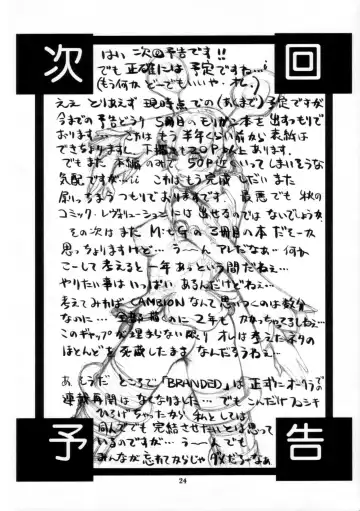 次回
はい 次回予告です!!
でも正確には予定ですね…
(もう何か どーでもいいや・れ。)
ええ とりあえず 現時点での(あくまで)予定ですが
今までの予告どうり 5冊目のもりがん本を出すつもりで
おります… これは もう半年くらい前から表紙は
できちょりますし、下描きも20P以上あります。
でもまた 本編のみで 50P近くいってしまいそうな
気配ですが… これはもう完成しだいまた
原いっちまうつもりでおりますです。 最悪でも 秋の
コミック・レヴォリューションには 出せるのでは ないでしょうか
その次はまた M・Gの3冊目の本だそーかと
思っちょりますけど… うーん アレだなあ… 何か
こーして考えると 一年あっという間だねぇ…
やりたい事は いっぱい あるんだけどねぇ…
考えてみれば CAMBION なんて 思いつくのは数分
なのに… 全部描くのに 2年とかかっちゃってるしねぇ…
このギャップが埋まらない限り オレは考えたネタの
ほとんどを 死蔵したまま なんだろうねぇ…
あ、そうだ ところで「BRANDED」は 正式にオークラで
連載再開は なくなりました… でも こんだけフロシキ
ひろげちゃったから 私としては
何んとでも 完結させたいとは思って
いるのですが… う〜ん でも
みんな忘れてからじゃ ダメだろーなあ
予告
24